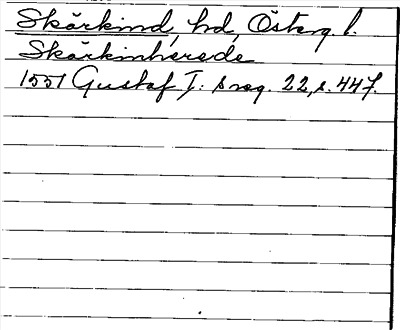 Skärkind, hd, Österg l.
Skärkinherede
1551 Gustaf I: s reg. 22, s. 447.